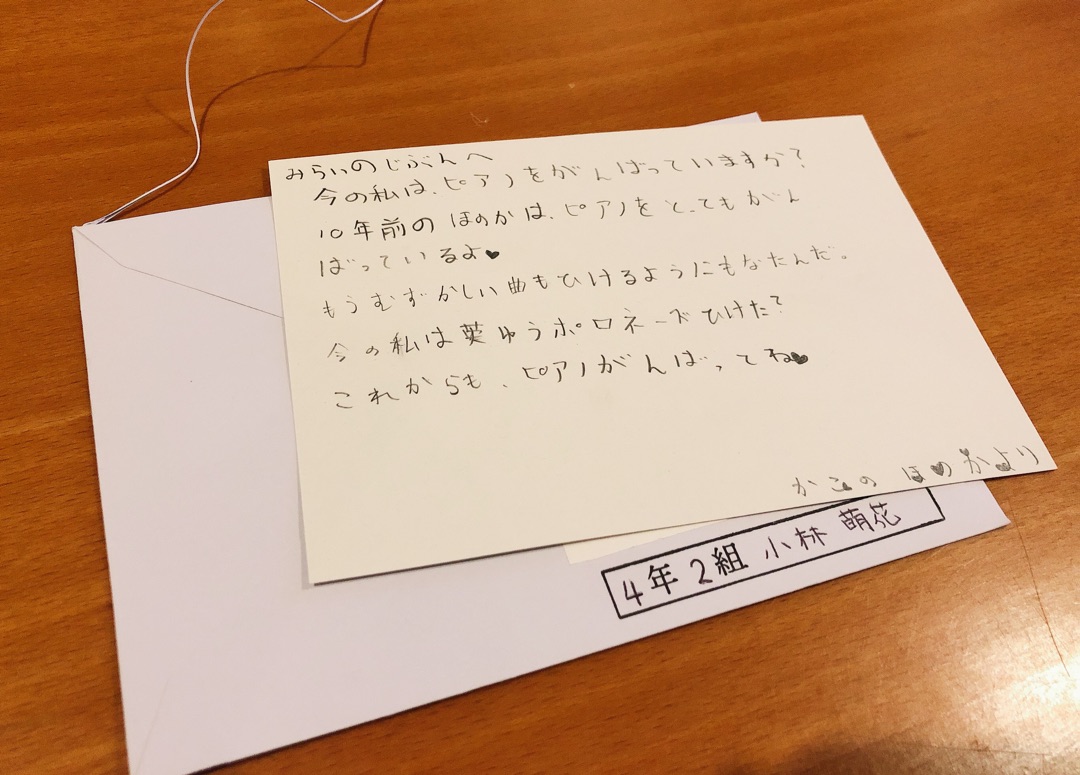 みらいのじぶんへ
今の私は、ピアノをがんばっていますか?
10年前のほのかは、ピアノをとってもがん
ばっているよ♥
もうむずかしい曲もひけるようにもなたんだ。
今の私は英ゆうポロネーズひけた?
これからも、ピアノがんばってね♥
かこのほのかより
4年2組 小林 萌花